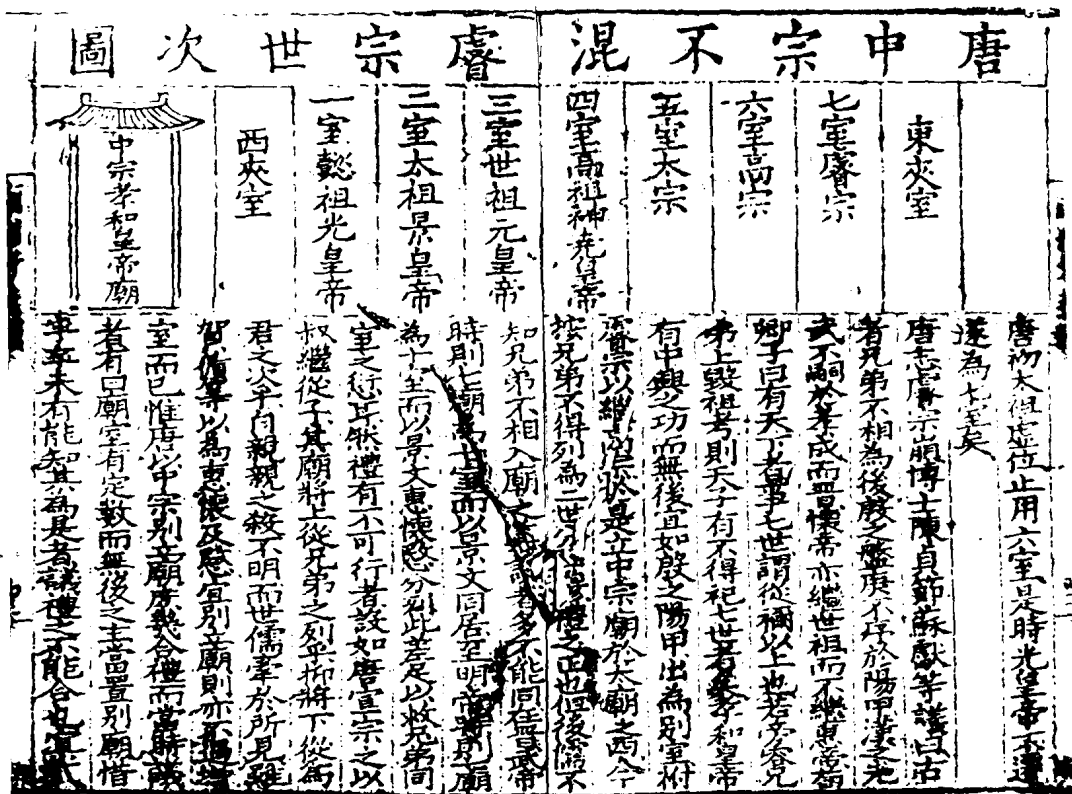 唐中宗不混
睿宗世次圖
東夾室
七室睿宗
六室高宗
五室太宗
四室高祖神堯皇帝
三室世祖元皇帝
二室太祖景皇帝
一室懿祖光皇帝
西夾室
中宗孝和皇帝廟
唐初太祖虛位止用六室是時光皇帝不遷
遂為七室矣
唐志睿宗崩博士陳貞節蘇獻等議曰古
者兄弟不相為後殷之盤庚不序於陽甲漢之光
武不嗣於孝成而晉懷帝亦繼世祖而不繼惠帝荀
卿子曰有天下者事七世謂從禰以上也若兄
弟上毀祖考則天子有不得祀七世者孝和皇帝
有中興之功而無後宜如殷之陽甲出為別室祔
睿宗以繼於是立中宗廟於太廟之西今
按兄弟不得列為二世禮之正也但後儒不
知兄弟不相入廟之者多不能同武帝
時則七廟為室而以景文同居至明帝時廟
為十室而以景文惠懷愍分列此若足以救兄弟同
室之然禮有不可行者設如唐宣宗之以
叔繼從子其廟將上從兄弟之列乎抑將下從為
君之次乎自親親之殺不明而世儒牽於所見雖
賀循等以為惠懷及愍宜別立廟則亦
室而已惟唐以中宗別立廟庶幾合禮而當時議
者有曰廟室有定數而無後之主當置別廟惜
未有能知其為是者議禮之不能合也